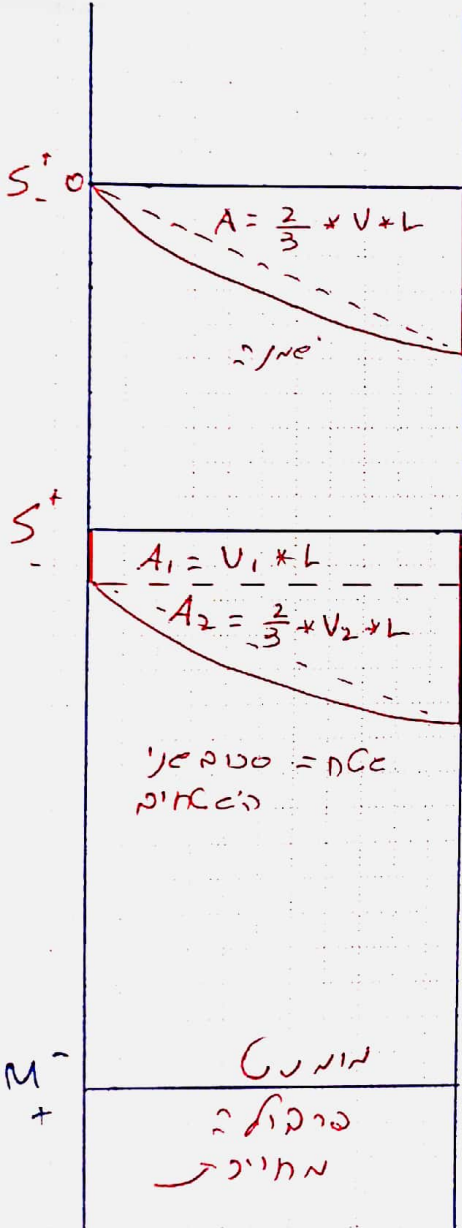 S + 0
-
A = 2/3 * V * L
S +
-
A₁ = V₁ * L
A₂ = 2/3 * V₂ * L
שטח = סכום שני
השטחים
M -
+
מומנט
פרבולה
מחייכת